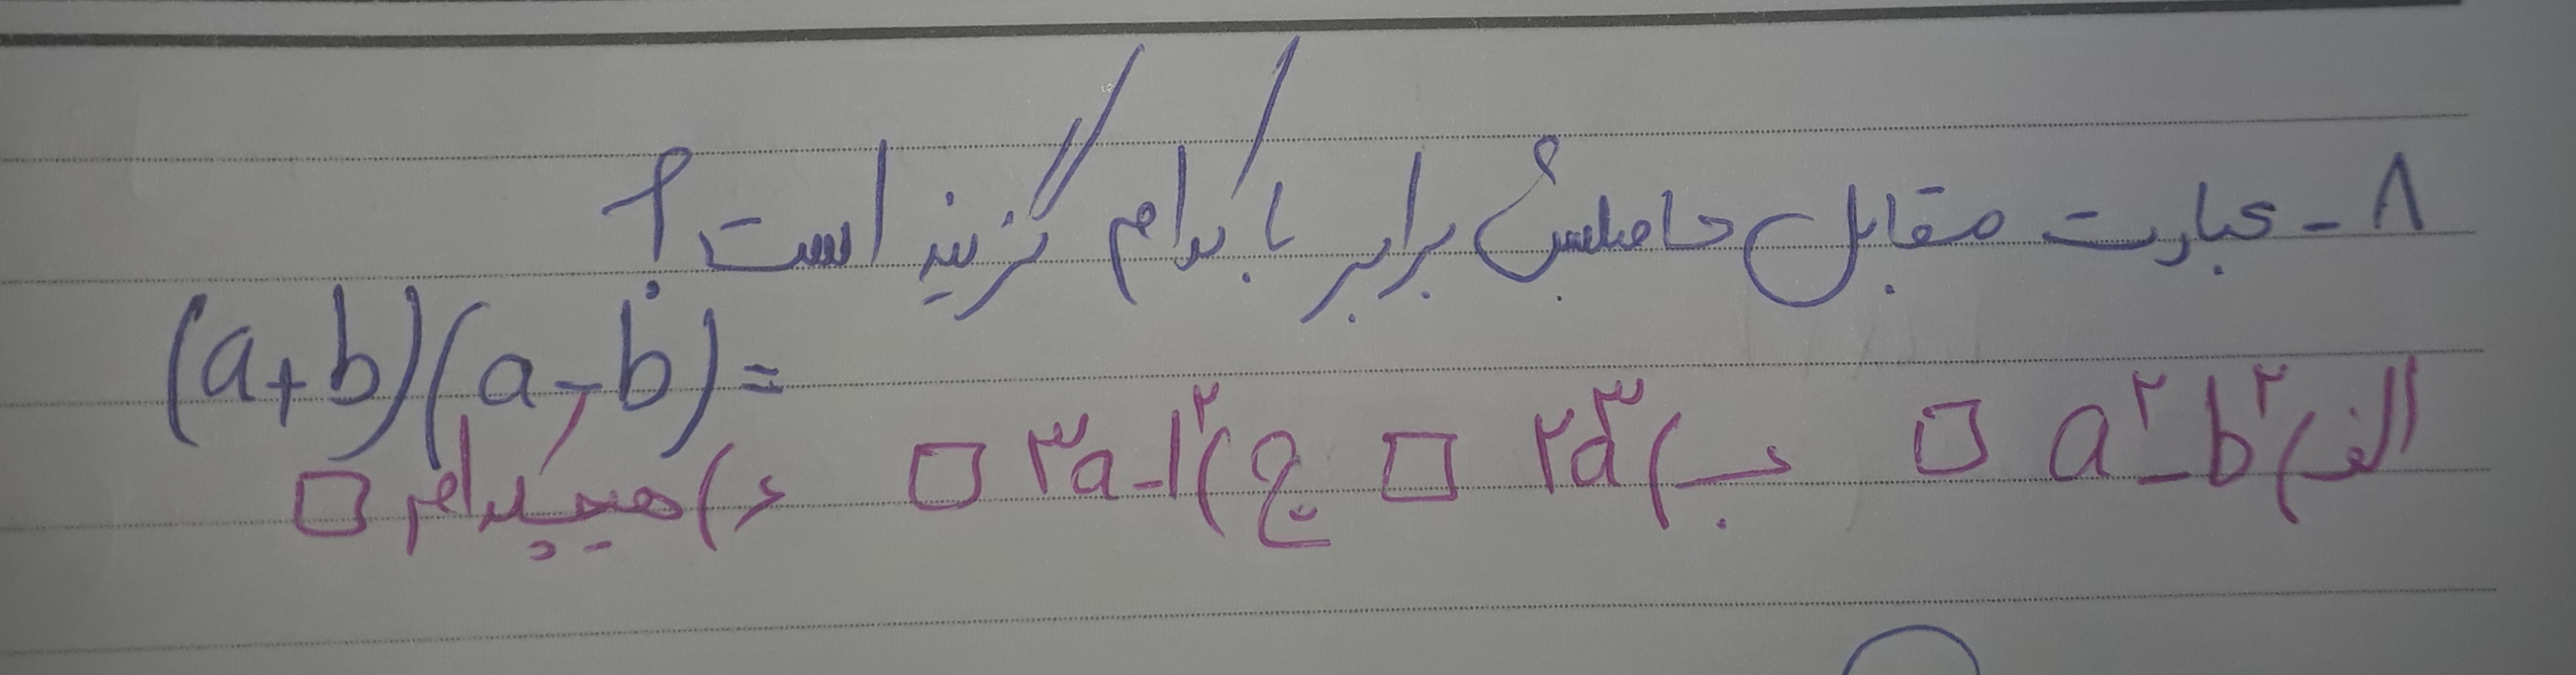 ۸ - عبارت مقابل حاصلش برابر با کدام گزینه است؟
(a+b)(a-b)=
الف) a²-b² □ ب) ۲a³ □ ج) ۳a-۱² □ د) هیچکدام □